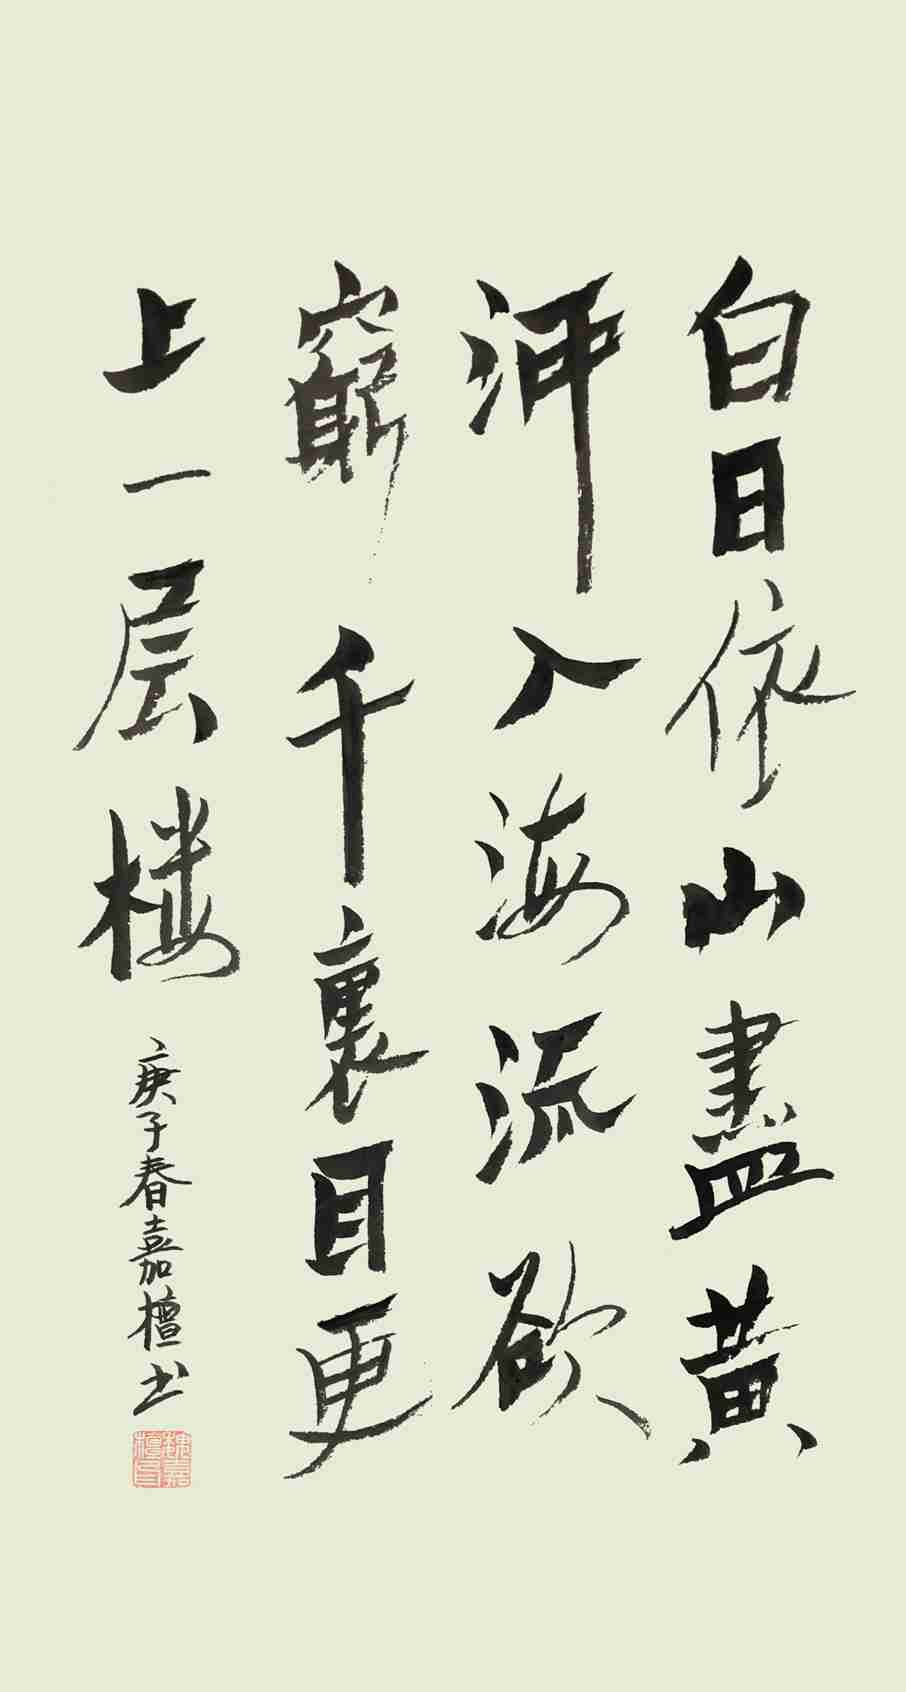 白日依山盡黃
河入海流欲
窮千裏目更
上一层楼
庚子春嘉檀书